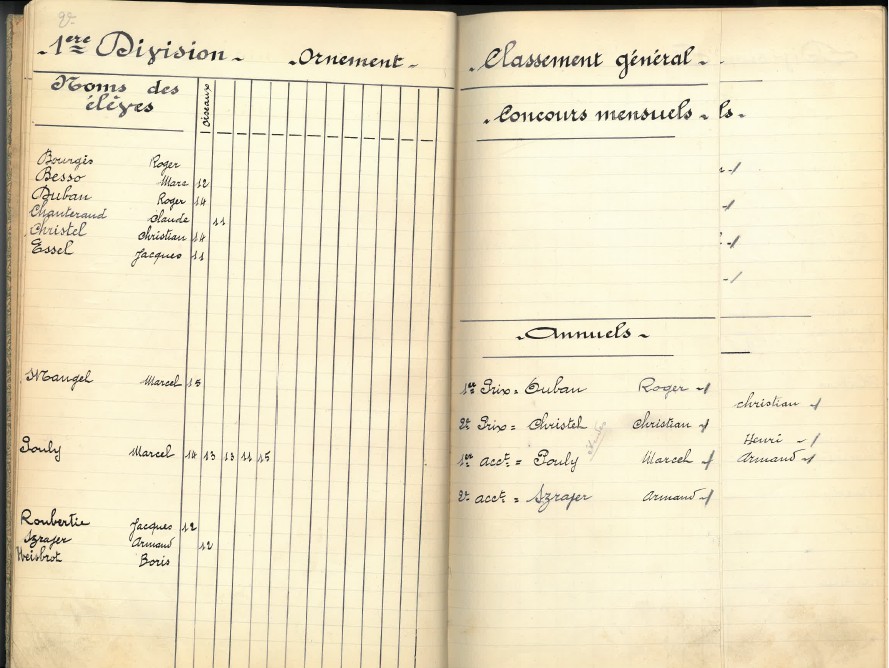 1ère Division - Ornement -
Noms des
élèves
Oiseaux
Bourgis Roger
Besso Marc 12
Duban Roger 14
Chanteraud Claude 11
Christel Christian 14
Essel Jacques 11
Mangel Marcel 15
Pouly Marcel 14 13 13 11 15
Roubertie Jacques 12
Szrajer Armand 12
Weisbrot Boris
- Classement général -
- Concours mensuels - ls -
- Annuels -
1er Prix = Duban Roger
christian
2e Prix = Christel Christian
Henri
1er acct = Pouly Marcel Armand
2e acct = Szrajer Armand